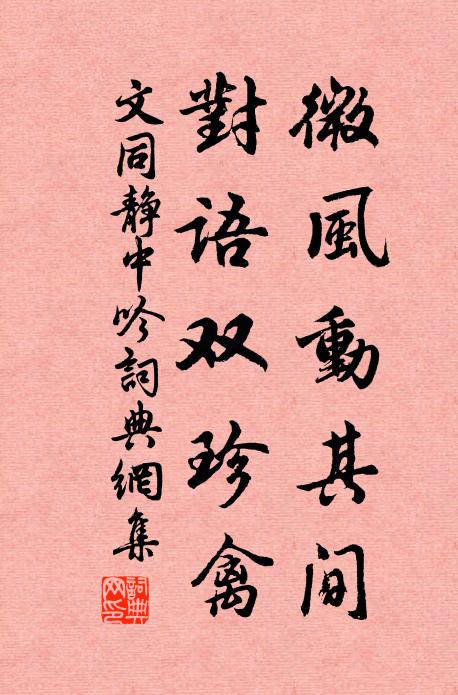 微風動其间
對語双珍禽
文同静中吟詞典網集
詞典網印